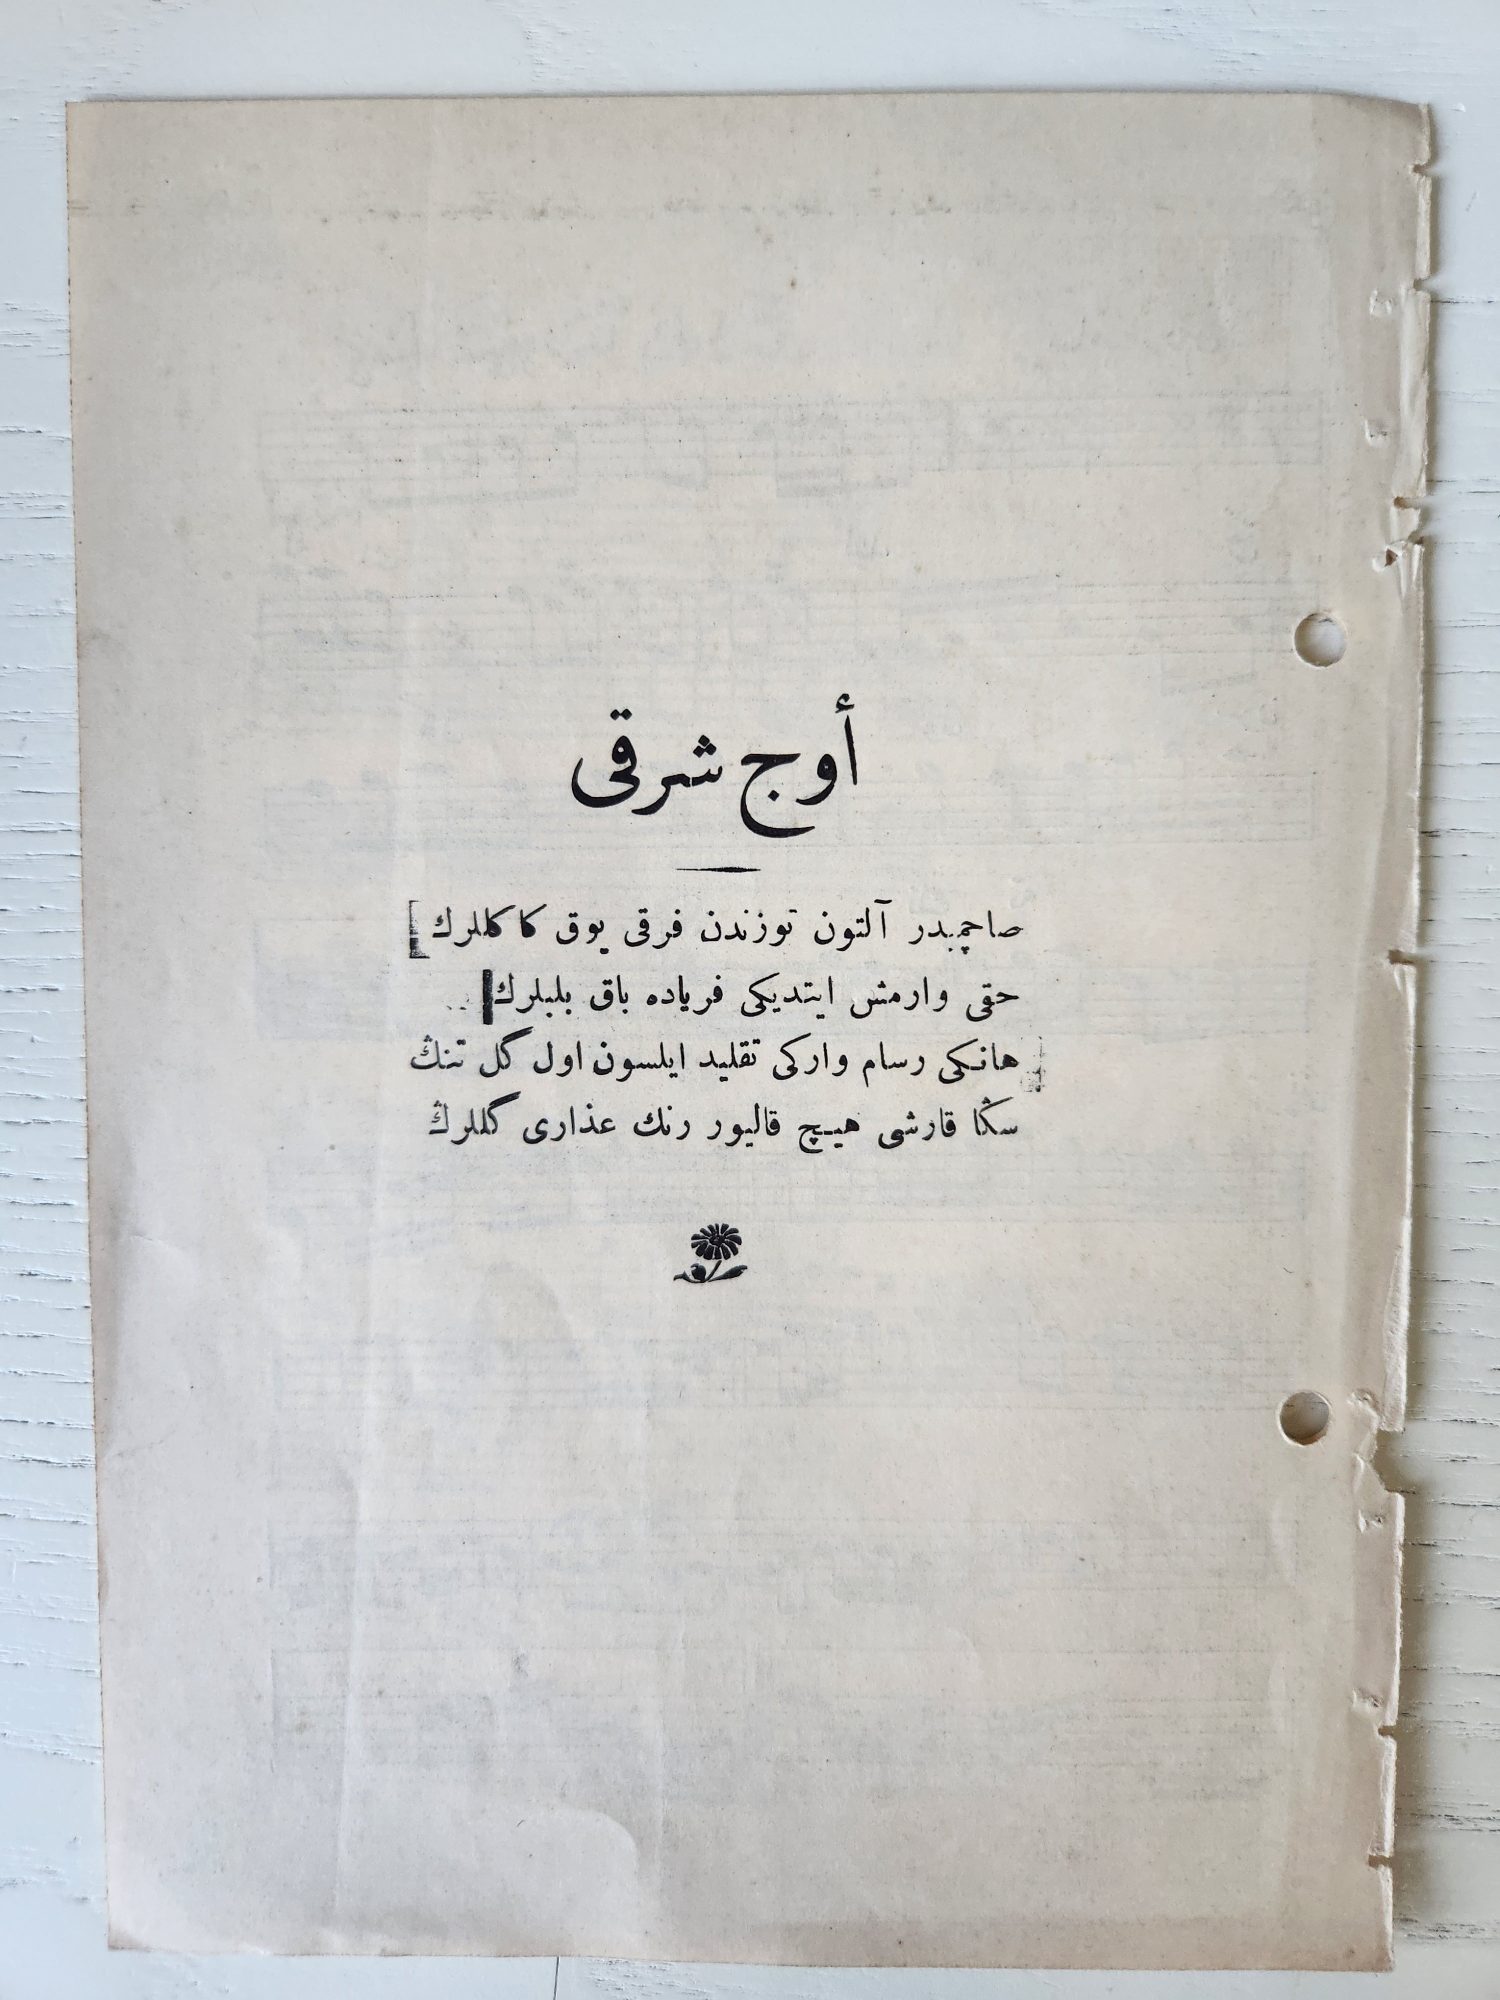 أوج شرقی
صاچمیدر آلتون توزندن فرقی یوق كاكللرك
حقی وارمش ایتدیكی فریاده باق بلبلرك
هانكی رسام واركی تقلید ایلسون اول گل تنڭ
سڭا قارشی هیچ قالیور رنك عذاری گللرڭ